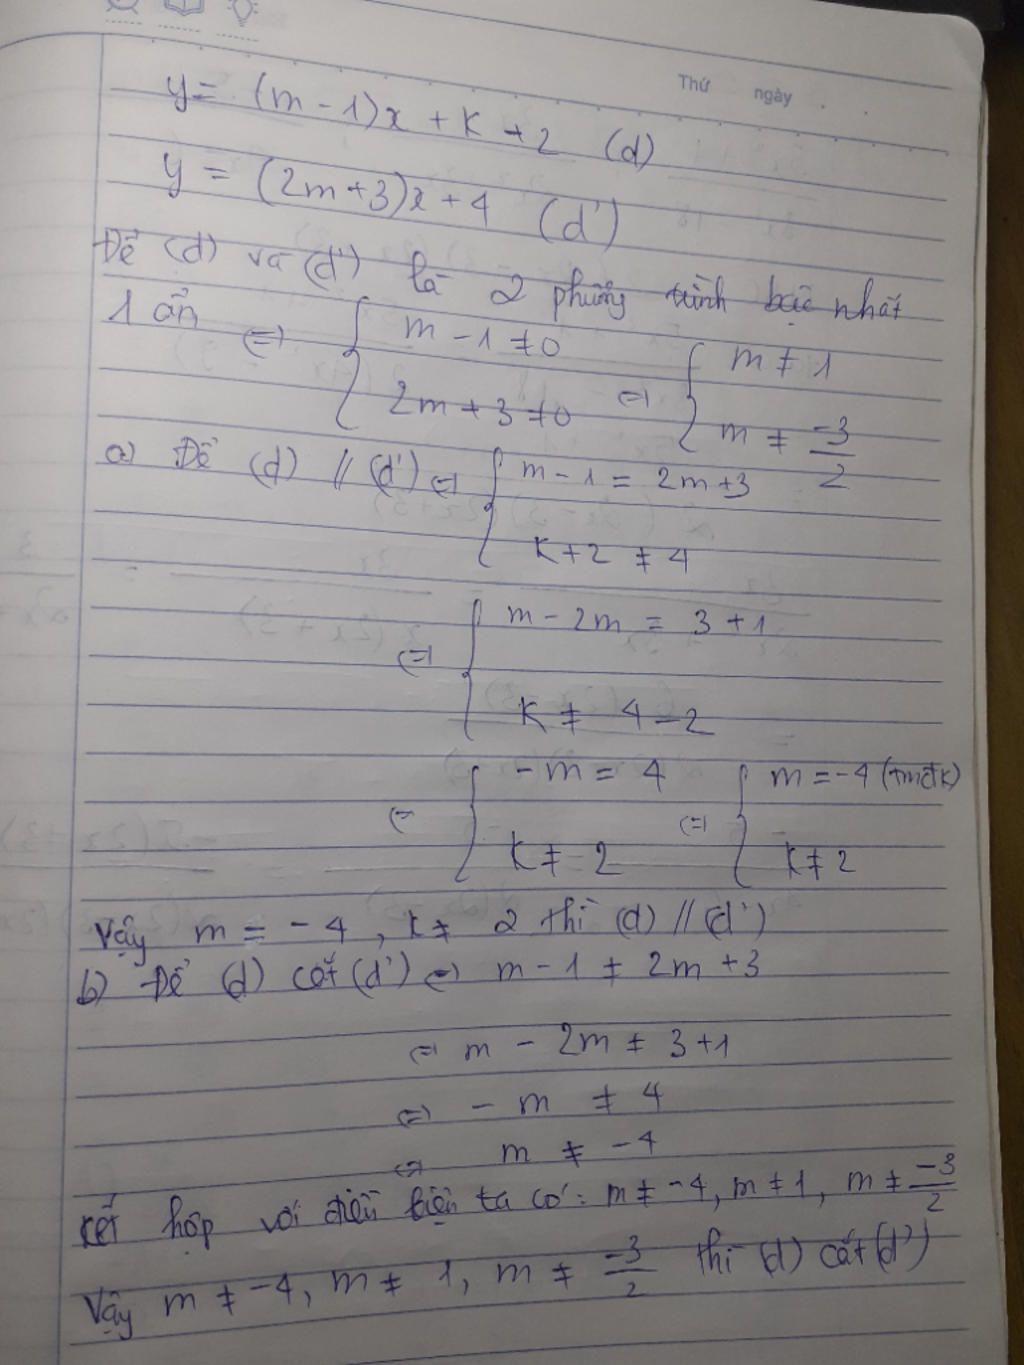 Thứ ngày
y = (m - 1)x + k + 2 (d)
y = (2m+3)x + 4 (d')
Để (d) và (d') là 2 phương trình bậc nhất
1 ẩn ⇔ { m - 1 ≠ 0 ⇔ { m ≠ 1
2m + 3 ≠ 0 m ≠ -3/2
a) Để (d) // (d') ⇔ { m - 1 = 2m+3
k+2 ≠ 4
⇔ { m - 2m = 3 + 1
k ≠ 4 - 2
⇔ { - m = 4 ⇔ { m = -4 (tmđk)
k ≠ 2 k ≠ 2
Vậy m = -4, k ≠ 2 thì (d) // (d')
b) Để (d) cắt (d') ⇔ m - 1 ≠ 2m + 3
⇔ m - 2m ≠ 3+1
⇔ - m ≠ 4
⇔ m ≠ -4
kết hợp với điều kiện ta có: m ≠ -4, m ≠ 1, m ≠ -3/2
Vậy m ≠ -4, m ≠ 1, m ≠ -3/2 thì (d) cắt (d')